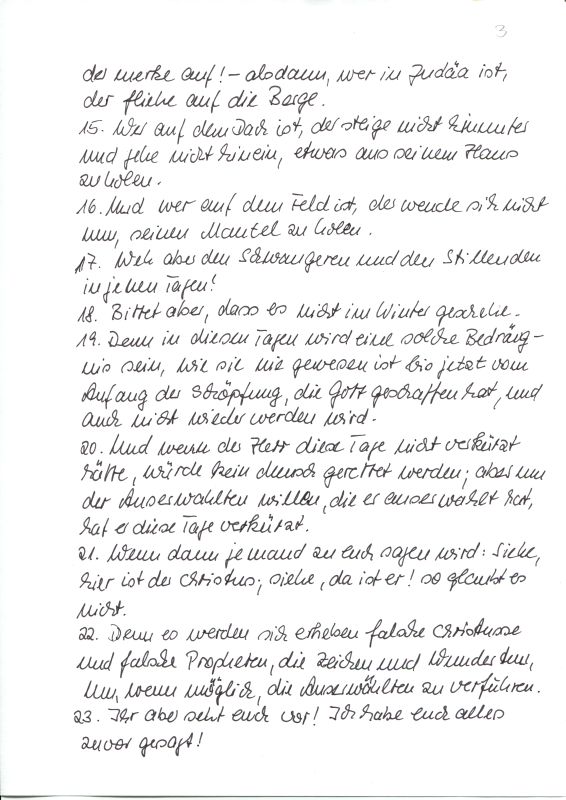 3
der merke auf! – alsdann, wer in Judäa ist,
der fliehe auf die Berge.
15. Wer auf dem Dach ist, der steige nicht hinunter
und gehe nicht hinein, etwas aus seinem Haus
zu holen.
16. Und wer auf dem Feld ist, der wende sich nicht
um, seinen Mantel zu holen.
17. Weh aber den Schwangeren und den Stillenden
in jenen Tagen!
18. Bittet aber, dass es nicht im Winter geschehe.
19. Denn in diesen Tagen wird eine solche Bedräng-
nis sein, wie sie nie gewesen ist bis jetzt vom
Anfang der Schöpfung, die Gott geschaffen hat, und
auch nicht wieder werden wird.
20. Und wenn der Herr diese Tage nicht verkürzt
hätte, würde kein Mensch gerettet werden; aber um
der Auserwählten willen, die er auserwählt hat,
hat er diese Tage verkürzt.
21. Wenn dann jemand zu euch sagen wird: Siehe,
hier ist der Christus; siehe, da ist er! so glaubt es
nicht.
22. Denn es werden sich erheben falsche Christusse
und falsche Propheten, die Zeichen und Wunder tun,
um, wenn möglich, die Auserwählten zu verführen.
23. Ihr aber seht euch vor! Ich habe euch alles
zuvor gesagt!